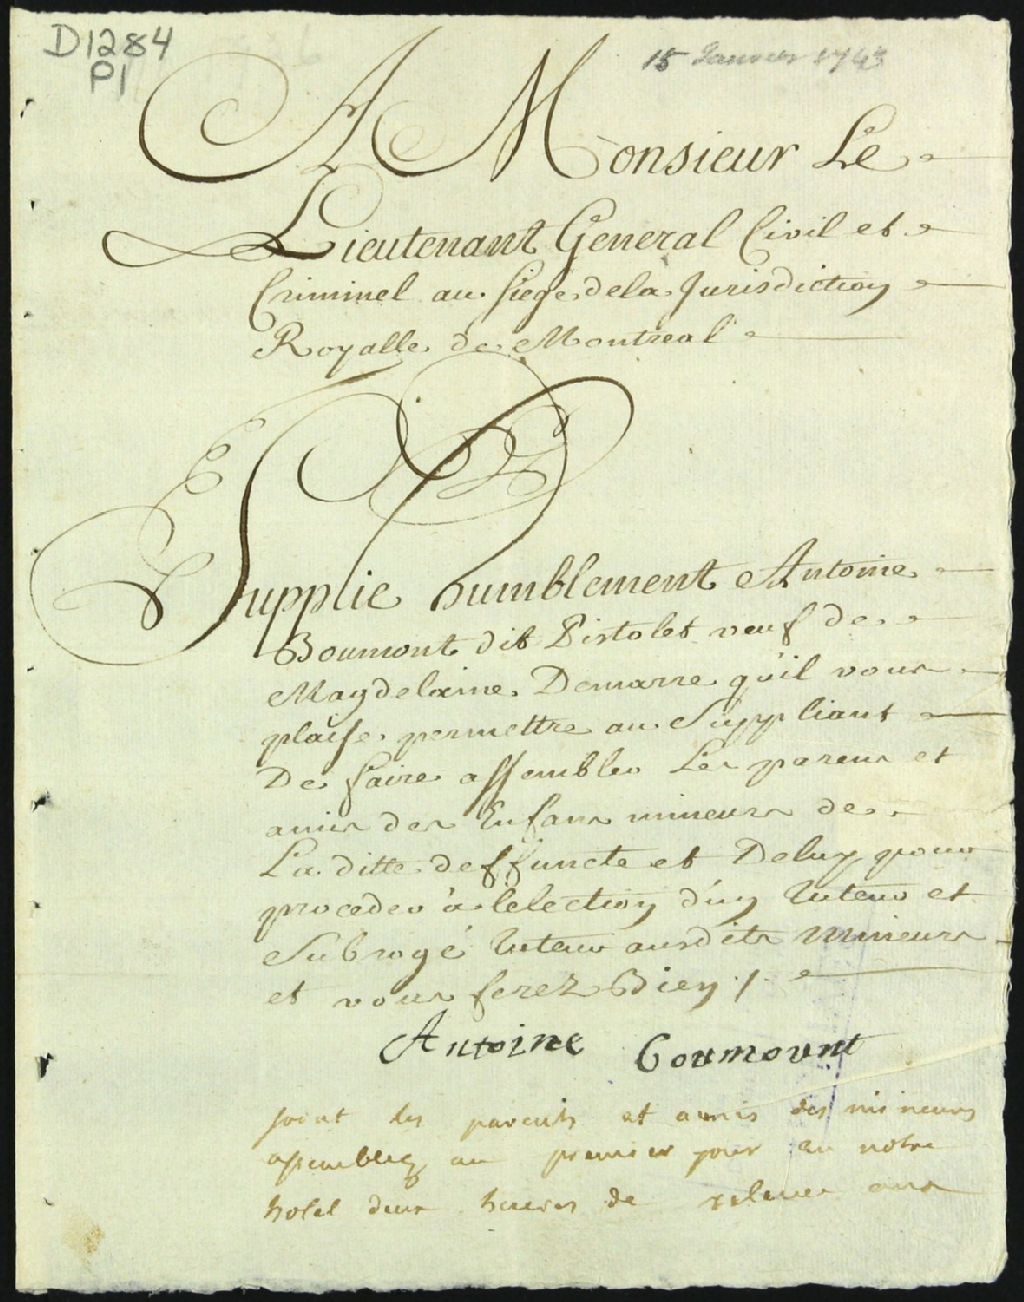 D1284
P1
15 Janvier 1743
A Monsieur Le
Lieutenant General Civil et
Criminel au siege de la Jurisdiction
Royalle de Montreal
Supplie humblement Antoine
Boumont dit Pistolet veuf de
Magdelaine Demarre qu'il vous
plaise permettre au Suppliant
De faire assembler Les parens et
amis des Enfans mineurs de
La ditte deffuncte et De luy pour
proceder à lelection d'un tuteur et
Subrogé tuteur ausdits mineurs
et vous ferez Bien /.
Antoine Boumount
soient les parents et amis des mineurs
assemblez au premier jour en notre
hotel deux heures de